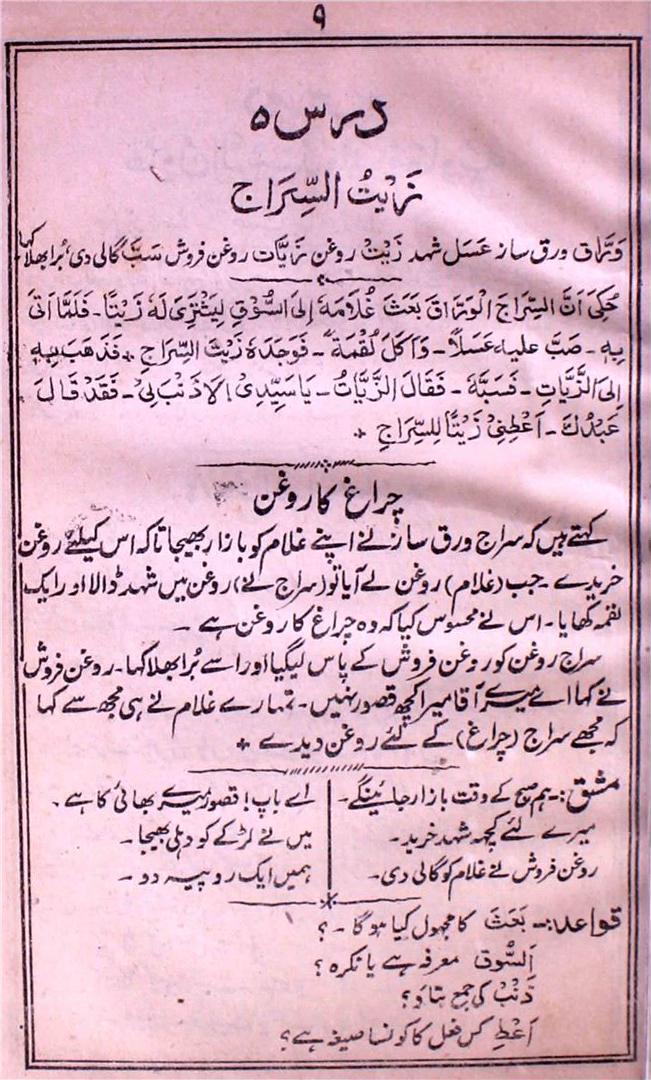 ۹
درس ۵
زَيْتُ السِّرَاجِ
وَرَّاق ورق ساز عَسَل شہد زَيْتْ روغن زَيَّات روغن فروش سَبَّ گالی دی، بُرا بھلا کہا
حُكِىَ اَنَّ السِّرَاجَ الْوَرَّاقَ بَعَثَ غُلَامَهٗ اِلَى السُّوْقِ لِيَشْتَرِىَ لَهٗ زَيْتًا ـ فَلَمَّا اَتٰى
بِهٖ ـ صَبَّ عليه عَسَلاً ـ وَاَكَلَ لُقْمَةً ـ فَوَجَدَهٗ زَيْتَ السِّرَاجِ ٭ فَذَهَبَ بِهٖ
اِلَى الزَّيَّاتِ ـ فَسَبَّهٗ ـ فَقَالَ الزَّيَّاتُ ـ يَا سَيِّدِىْ الَاذَنْبَ لِىْ ـ فَقَدْ قَالَ
عَبْدُكَ ـ اَعْطِنِىْ زَيْتًا لِلسِّرَاجِ ٭
چراغ کا روغن
کہتے ہیں کہ سراج ورق ساز نے اپنے غلام کو بازار بھیجا تاکہ اس کیلئے روغن
خریدے ۔ جب (غلام) روغن لے آیا تو (سراج نے) روغن میں شہد ڈالا اور ایک
لقمہ کھایا ۔ اس نے محسوس کیا کہ وہ چراغ کا روغن ہے ۔
سراج روغن کو روغن فروش کے پاس لیگیا اور اسے بُرا بھلا کہا ۔ روغن فروش
نے کہا اے میرے آقا میرا کچھ قصور نہیں ۔ تمہارے غلام نے ہی مجھ سے کہا
کہ مجھے سراج (چراغ) کے لئے روغن دیدے ٭
مشق :۔ ہم صبح کے وقت بازار جائینگے ۔
میرے لئے کچھ شہد خرید ۔
روغن فروش نے غلام کو گالی دی ۔
اے باپ! قصور میرے بھائی کا ہے ۔
میں نے لڑکے کو دہلی بھیجا ۔
ہمیں ایک روپیہ دو ۔
قواعد :۔ بَعَثَ کا مجہول کیا ہوگا ۔ ؟
اَلسُّوق معرفہ ہے یا نکرہ ؟
ذَنْبْ کی جمع بتاؤ ؟
اَعْطِ کس فعل کا کونسا صیغہ ہے ؟